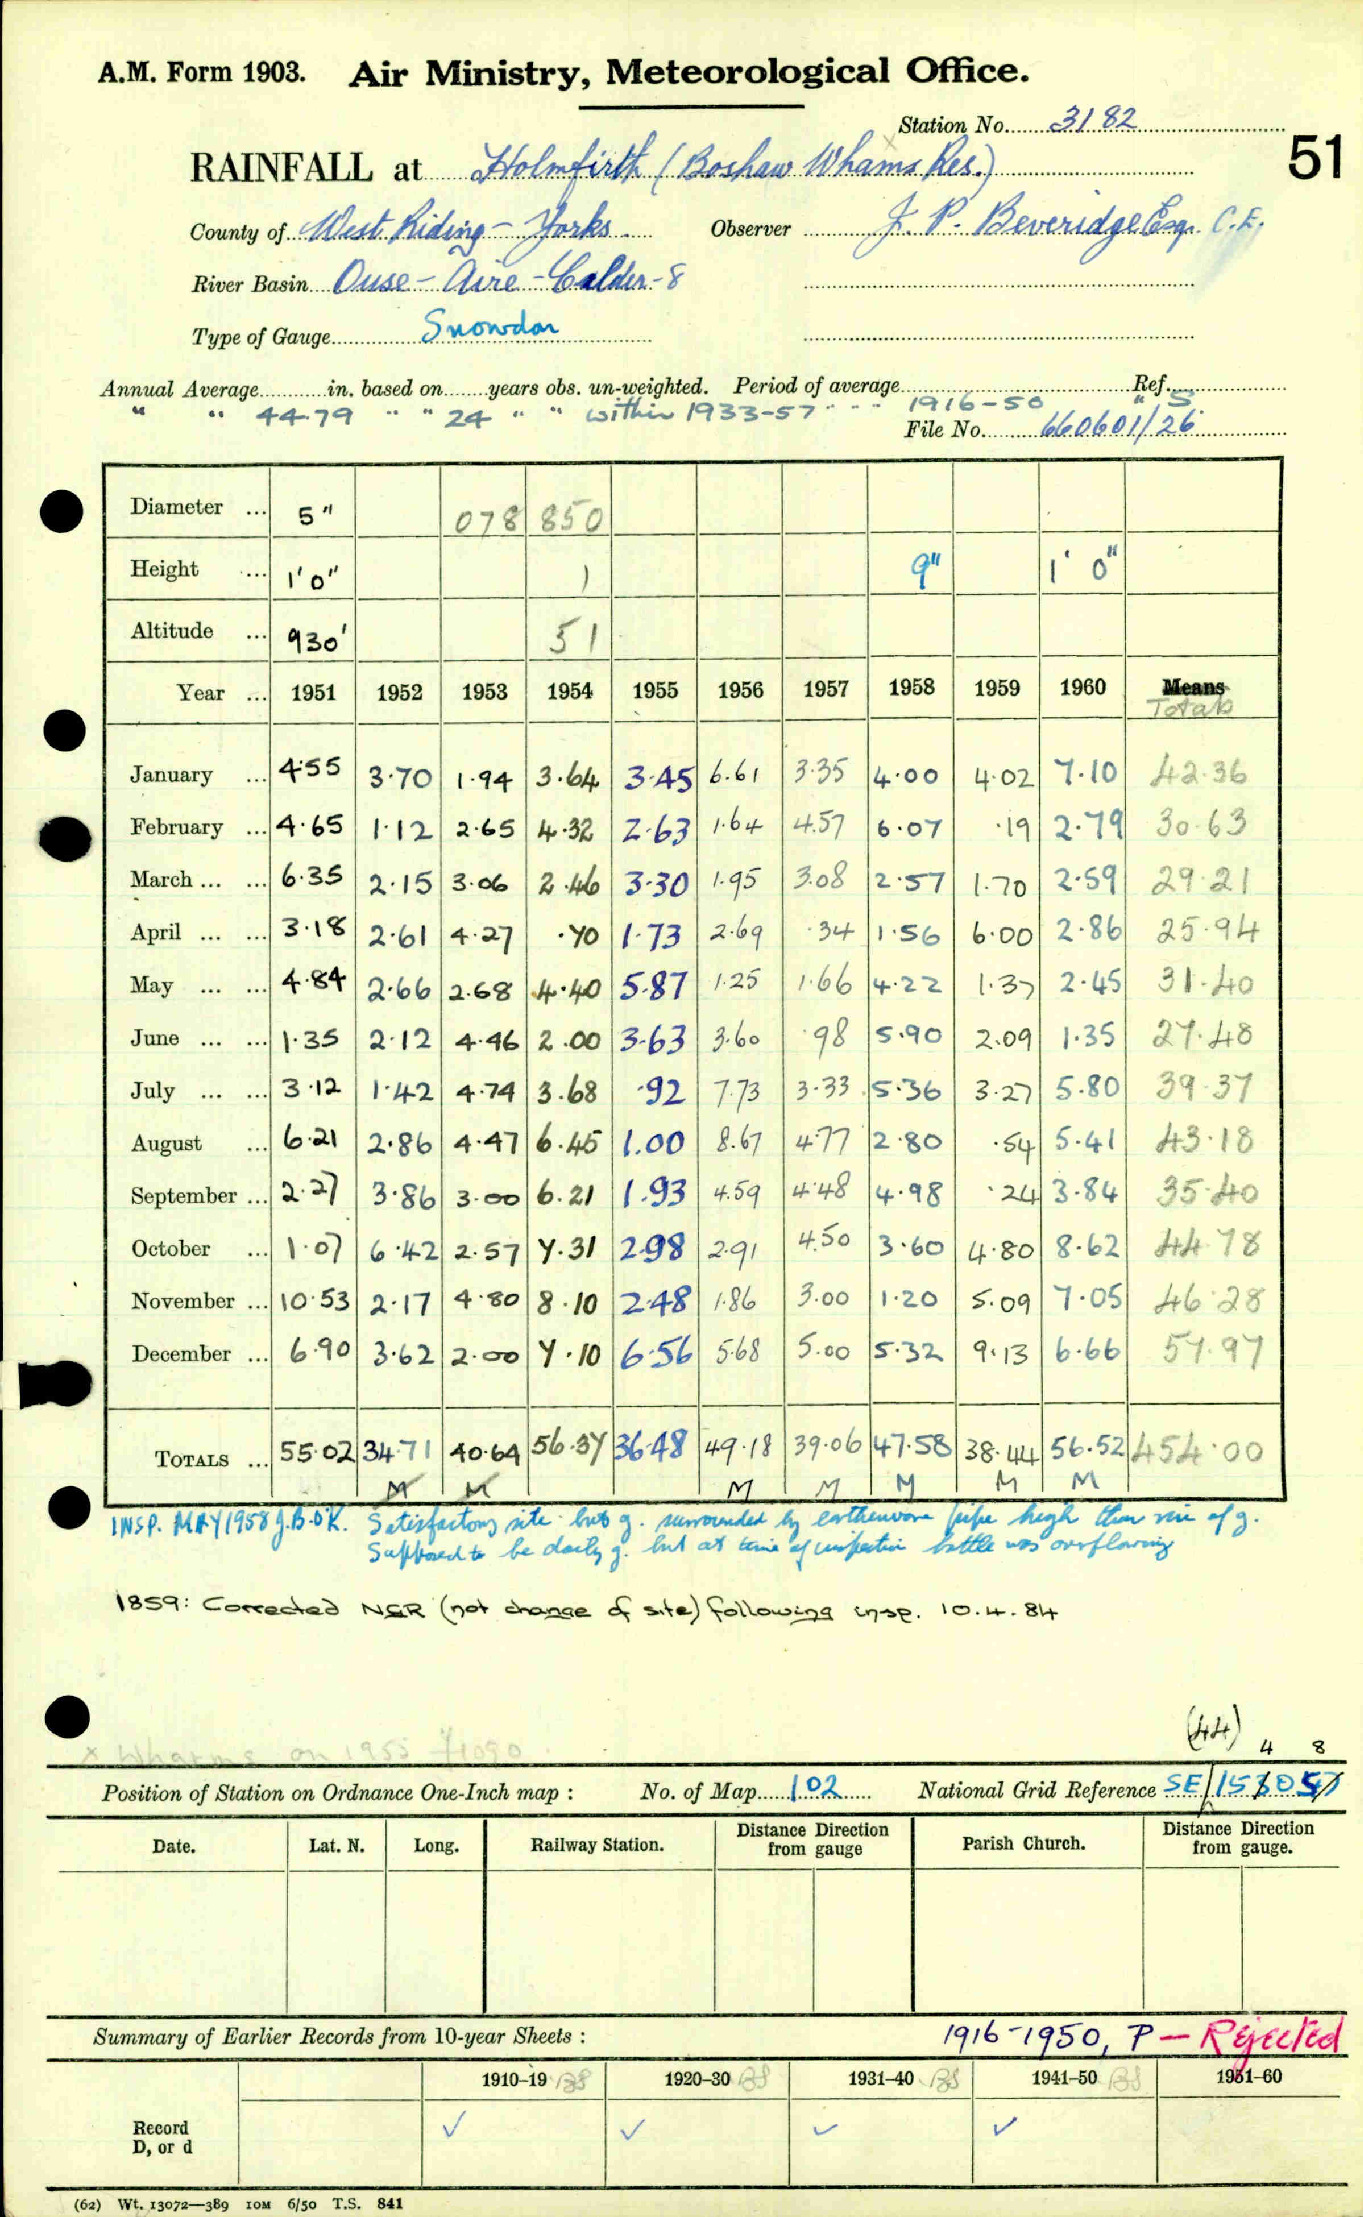 A.M. Form 1903. Air Ministry, Meteorological Office.
Station No. 3182
51
RAINFALL at Holmfirth (Boshaw Whams Res.)
x
County of West Riding - Yorks. Observer J. P. Beveridge Esq. C.E.
River Basin Ouse - Aire - Calder - 8
Type of Gauge Snowdon
Annual Average in. based on years obs. un-weighted. Period of average Ref.
" " 44.79 " " 24 " " within 1933-57 " - - 1916-50 " S
File No. 660601/26
Diameter ... 5" 078 850
Height ... 1'0" 1 9" 1' 0"
Altitude ... 930' 51
Year ... 1951 1952 1953 1954 1955 1956 1957 1958 1959 1960 Means
Totals
January ... 4.55 3.70 1.94 3.64 3.45 6.61 3.35 4.00 4.02 7.10 42.36
February ... 4.65 1.12 2.65 4.32 2.63 1.64 4.57 6.07 .19 2.79 30.63
March ... ... 6.35 2.15 3.06 2.46 3.30 1.95 3.08 2.57 1.70 2.59 29.21
April ... ... 3.18 2.61 4.27 .70 1.73 2.69 .34 1.56 6.00 2.86 25.94
May ... ... 4.84 2.66 2.68 4.40 5.87 1.25 1.66 4.22 1.37 2.45 31.40
June ... ... 1.35 2.12 4.46 2.00 3.63 3.60 .98 5.90 2.09 1.35 27.48
July ... ... 3.12 1.42 4.74 3.68 .92 7.73 3.33 5.36 3.27 5.80 39.37
August ... 6.21 2.86 4.47 6.45 1.00 8.67 4.77 2.80 .54 5.41 43.18
September ... 2.27 3.86 3.00 6.21 1.93 4.59 4.48 4.98 .24 3.84 35.40
October ... 1.07 6.42 2.57 7.31 2.98 2.91 4.50 3.60 4.80 8.62 44.78
November ... 10.53 2.17 4.80 8.10 2.48 1.86 3.00 1.20 5.09 7.05 46.28
December ... 6.90 3.62 2.00 7.10 6.56 5.68 5.00 5.32 9.13 6.66 57.97
TOTALS ... 55.02 34.71 40.64 56.37 36.48 49.18 39.06 47.58 38.44 56.52 454.00
M M M M M M M
INSP. MAY 1958 J.B.O'K. Satisfactory site but g. surrounded by earthenware pipe high than rim of g.
Supposed to be daily g. but at time of inspection bottle was overflowing
1859: Corrected NGR (not change of site) following insp. 10.4.84
x Wharms on 1955 f1090
(44)
4 8
Position of Station on Ordnance One-Inch map : No. of Map 102 National Grid Reference SE/153057
Date. Lat. N. Long. Railway Station. Distance Direction from gauge Parish Church. Distance Direction from gauge.
Summary of Earlier Records from 10-year Sheets : 1916-1950, P - Rejected
1910-19 BS 1920-30 BS 1931-40 BS 1941-50 BS 1951-60
Record
D, or d ✓ ✓ ✓ ✓
(62) Wt. 13072—389 10M 6/50 T.S. 841